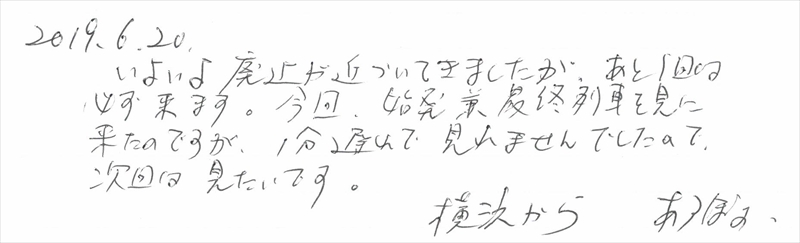 2019.6.20.
いよいよ廃止が近づいてきましたが、あと1回は
必ず来ます。今回、始発兼最終列車を見に
来たのですが、1分遅れで見れませんでしたので、
次回は見たいです。
横浜から